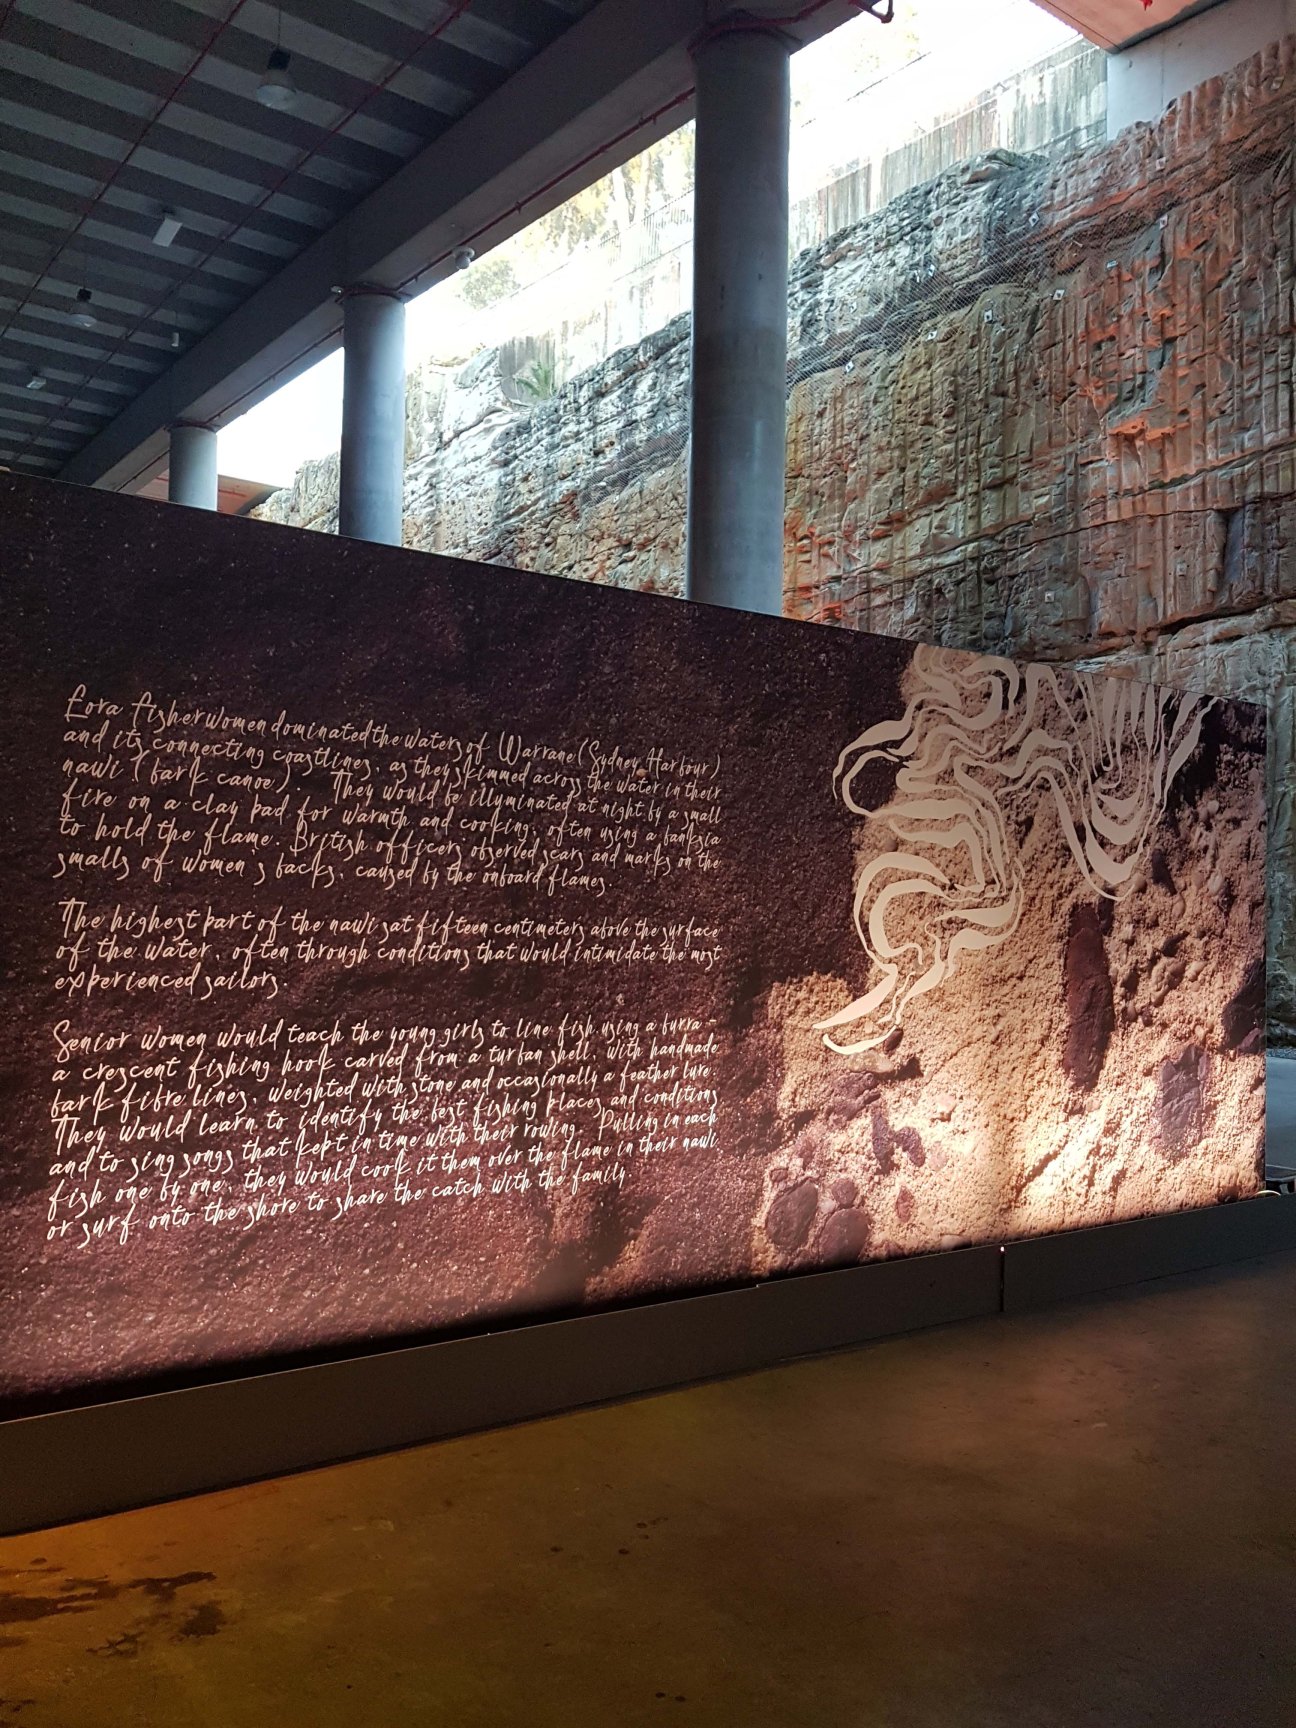 Eora fisherwomen dominated the waters of Warrane (Sydney Harbour)
and its connecting coastlines, as they skimmed across the water in their
nawi (bark canoe). They would be illuminated at night by a small
fire on a clay pad for warmth and cooking, often using a banksia
to hold the flame. British officers observed scars and marks on the
smalls of women's backs, caused by the onboard flames.
The highest part of the nawi sat fifteen centimeters above the surface
of the water, often through conditions that would intimidate the most
experienced sailors.
Senior women would teach the young girls to line fish using a burra -
a crescent fishing hook carved from a turban shell, with handmade
bark fibre lines, weighted with stone and occasionally a feather lure.
They would learn to identify the best fishing places and conditions
and to sing songs that kept in time with their rowing. Pulling in each
fish one by one, they would cook it them over the flame in their nawi
or surf onto the shore to share the catch with the family.